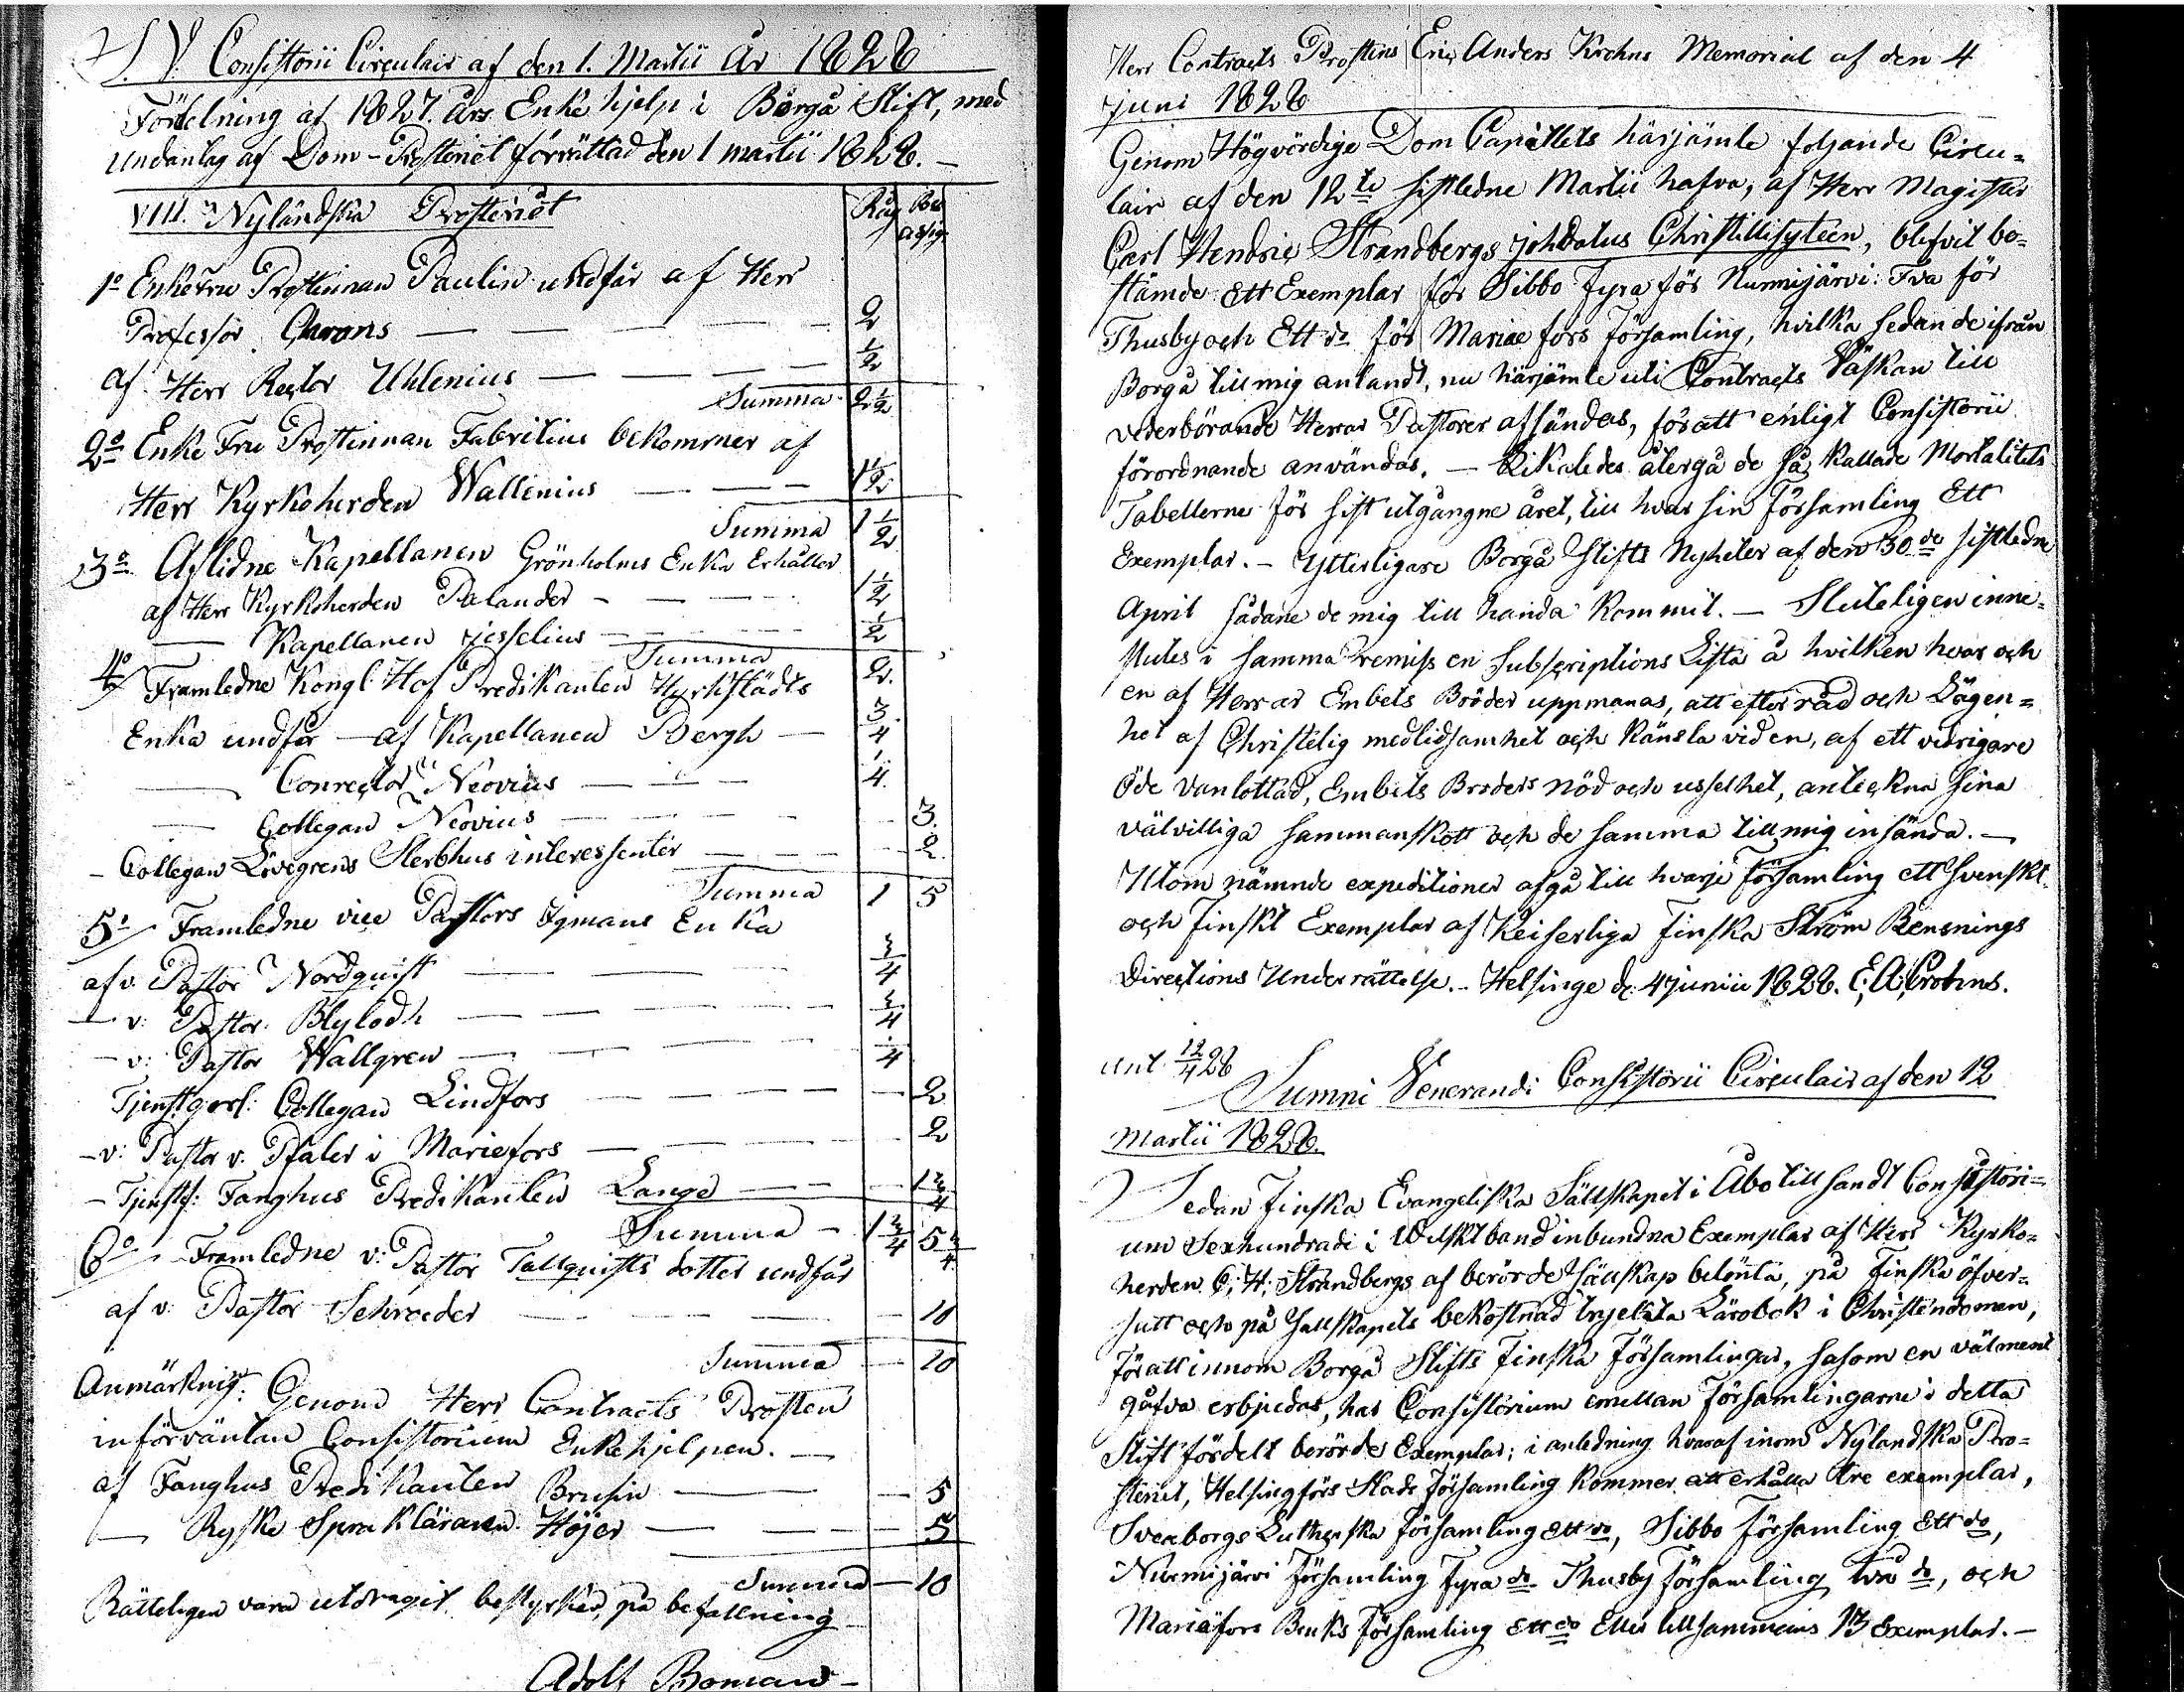 S. V. Consistorii Circulair af den 1. Martii År 1828
Fördelning af 1827. års Enke hjelp i Borgå Stift, med
undantag af Dom-Prosteriet förrättad den 1 martii 1828. –
VIII. Nyländska Prosteriet
Råg Rub assig
1o Enke Fru Prostinnan Paulin undfår af Herr
Professor Ganons — 2
af Herr Rector Uhlenius — 1/2
Summa 2 1/2
2o Enke Fru Prostinnan Fabritius bekommer af
Herr Kyrkoherden Wallenius — 1 1/2
Summa 1 1/2
3o Aflidne Kapellanen Grönholms Enka Erhåller
af Herr Kyrkoherden Palander — 1 1/2
— Kapellanen Jesselius — 1/2
Summa 2.
4o Framledne Kongl Hof Predikanten Kyrkstädts
Enka undfår — af Kapellanen Bergh — 3/4
— Conrector Neovius — 1/4.
— Collegan Neovius — 3.
– Collegan Lövegrens Sterbhus interessenter — 2.
Summa 1 5
5o Framledne vice Pastors Igmans Enka
af v. Pastor Nordquist — 3/4
— v: Pastor Blylodh — 3/4
– v: Pastor Wallgren — 1/4
Tjenstgörl: Collegan Lindfors — 2
– v: Pastor v. Pfaler i Mariefors — 2
– Tjenstf: Fånghus Predikanten Lange — 1 3/4
Summa – 1 3/4 5 3/4
6o Framledne v: Pastor Tallquists dotter undfår
af v: Pastor Schroeder — 10
Summa — 10
Anmärkning: Genom Herr Contracts Prosten
införväntan Consistorium Enkehjelpen. —
af Fånghus Predikanten Brusin — 5
— Ryske Språkläraren Höjer — 5
Summa — 10
Rätteligen vara utdragit, bestyrker, på befallning
Adolf Boman –
Herr Contracts Prostens Eric Anders Krohns Memorial af den 4
juni 1828
Genom Högvördige Dom Capitlets härjämte foljande Circu=
lair af den 12te sistledne Martii hafva, af Herr Magister
Carl Hendric Strandbergs johdatus Christillisyteen, blifvit be=
stämde: Ett Exemplar för Sibbo Fyra för Nurmijärvi: Två för
Thusby och Ett do för Mariae fors Församling, hvilka sedan de ifrån
Borgå till mig anlandt, nu härjämte uti Contracts Väskan till
vederbörande Herrar Pastorer afsändas, för att enligt Consistorii
förordnande användas. — Likaledes återgå de så kallade Mortalitets
Tabellerne för sist utgångne året, till hvar sin Församling Ett
Exemplar. – Ytterligare Borgå Stifts Nyheter af den 30de sistledne
April sådane de mig till handa kommit. — Sluteligen inne=
slutes i samma remiss en Subscriptions Lista å hvilken hvar och
en af Herrar Embets Bröder uppmanas, att efter råd och Lägen=
het af Christelig medlidsamhet och känsla vid en, af ett vidrigare
öde vanlottad, Embets Broders nöd och usselhet, anteckna sina
välvilliga sammanskott och de samma till mig insända. —
Utom nämnde expeditioner afgå till hvarje Församling ett svenskt
och Finskt Exemplar af Keiserliga Finska Ström Rensnings
Directions Underrättelse. – Helsinge d: 4 junii 1828. E: A: Crohns.
Ant. 12/4 28
Sumni Venerandi Consistorii Circulair af den 12
Martii 1828.
Sedan Finska Evangeliska Sällskapet i Åbo till sandt Consistori=
um Sexhundrade i Wälskt band inbundna Exemplar af Herr Kyrko=
herden C: H: Strandbergs af berörde Sällskap belönta, på Finska öfver=
satt och på Sällskapets bekostnad tryckta Lärobok i Christendomen,
för att innom Borgå Stifts Finska Församlingar, såsom en välment
gåfva erbjudas, har Consistorium emellan Församlingarne i detta
Stift fördelt berörde Exemplar; i anledning hvaraf inom Nylandska Pro=
steriet, Helsingfors Stads Församling kommer att erhålla tre exemplar,
Sveaborgs Lutherska Församling Ett do, Sibbo Församling Ett do,
Nurmijärvi Församling Fyra do Thusby Församling två do, och
Mariæfors Bruks Församling Ett do Eller tillsammans 13 Exemplar. —